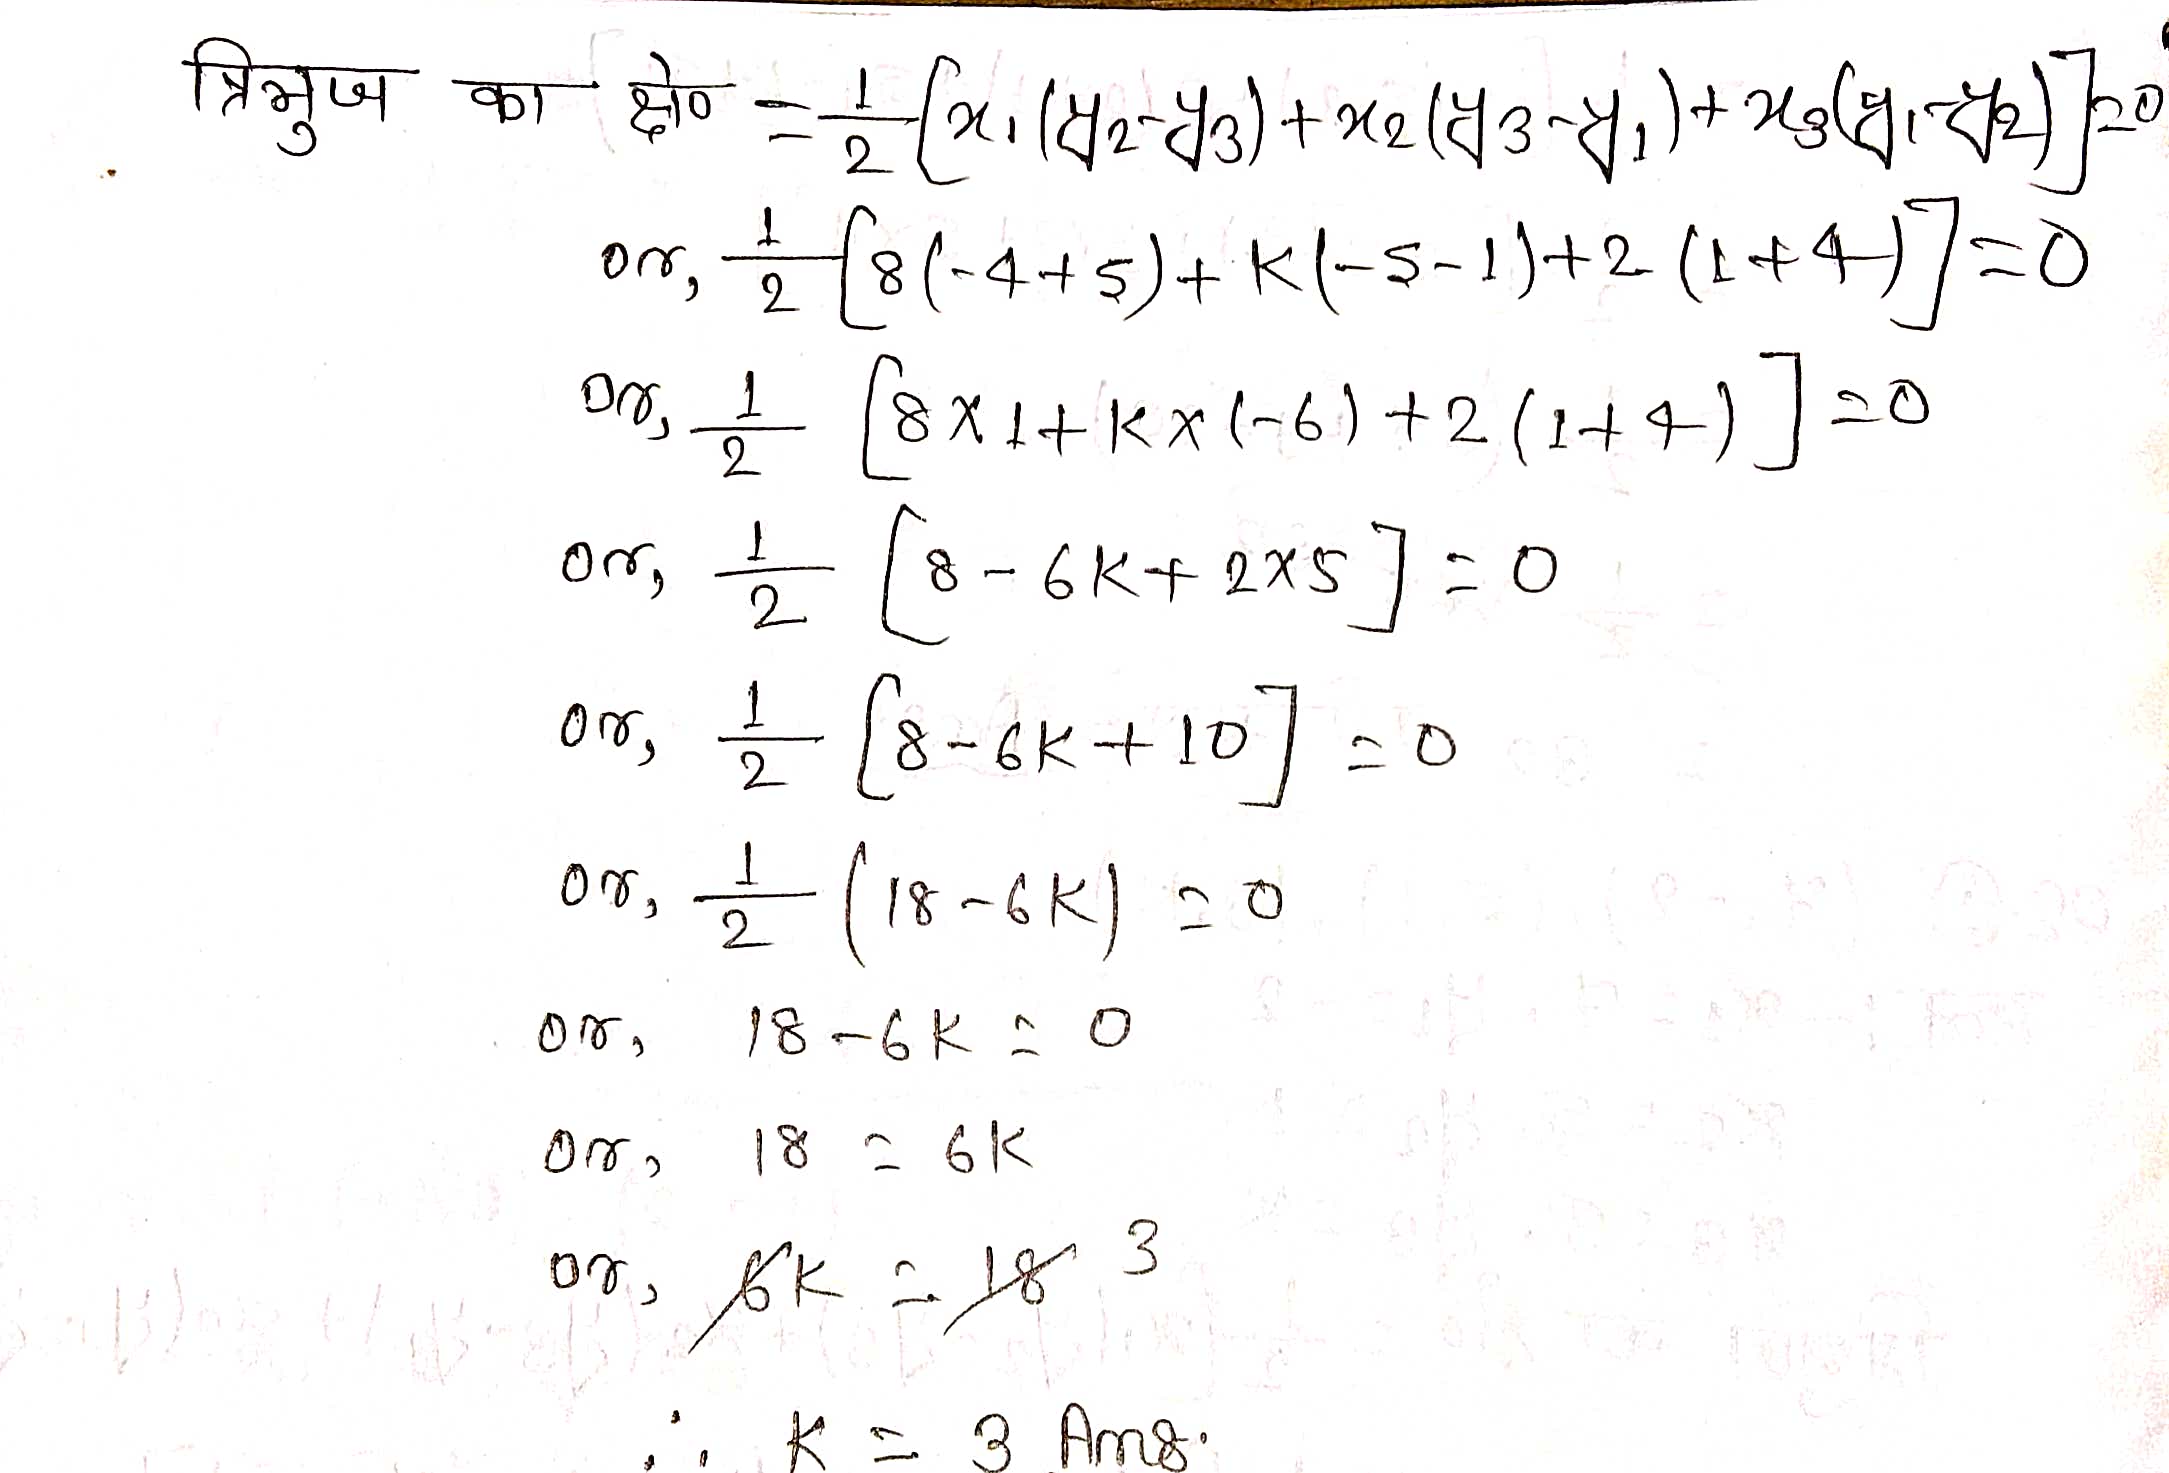 त्रिभुज का क्षे० = 1/2 [x₁(y₂-y₃)+x₂(y₃-y₁)+x₃(y₁-y₂)]=0
or, 1/2 [8(-4+5)+K(-5-1)+2(1+4)]=0
or, 1/2 [8×1+K×(-6)+2(1+4)]=0
or, 1/2 [8-6K+2×5]=0
or, 1/2 [8-6K+10]=0
or, 1/2 (18-6K)=0
or, 18-6K=0
or, 18=6K
or, 6K=18 3
∴ K=3 Ans.